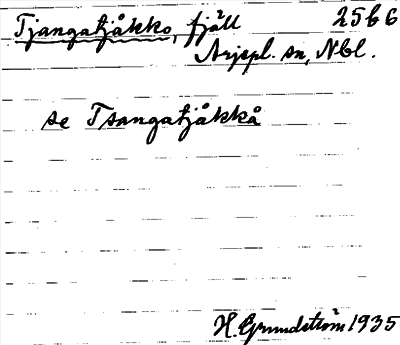 Tjangatjåkko, fjäll 25 G 6
Arjepl. sn, Nbl.
se Tsangatjåkkå
H. Grundström 1935